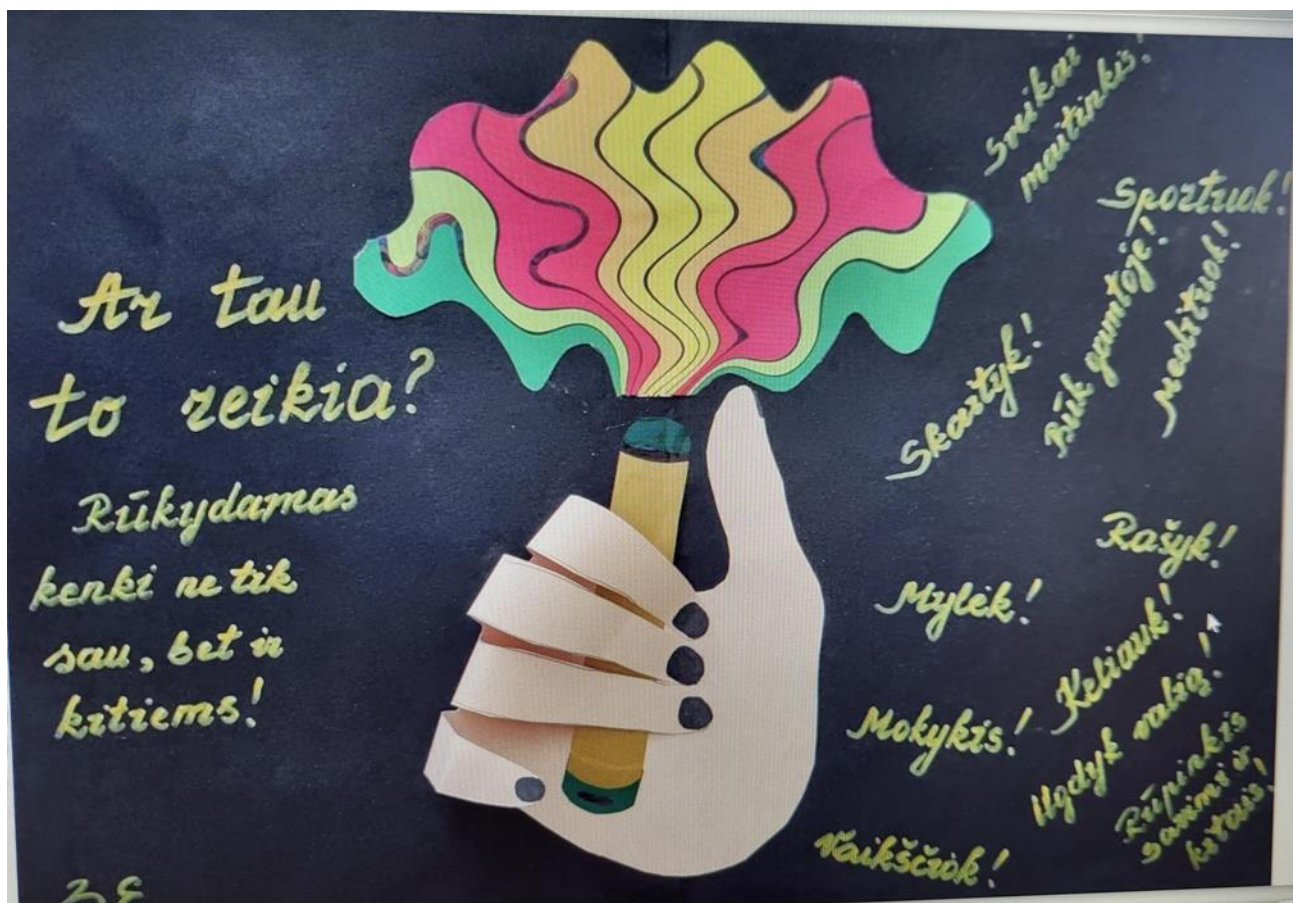 Ar tau
to reikia?
Rūkydamas
kenki ne tik
sau, bet ir
kitiems!
Sveikai
maitinkis!
Sportuok!
Būk gamtoje!
Meditruok!
Skaityk!
Rašyk!
Mylėk!
Keliauk!
Mokykis!
Ugdyk valią!
Rūpinkis
savimi ir
kitais!
Vaikščiok!